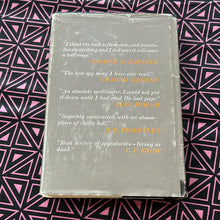 "I think the book is first-rate, and tremen-
dously exciting, and I feel sure it will have
a huge sale."
DAPHNE du MAURIER
"The best spy story I have ever read."
GRAHAM GREENE
"An absolute spellbinder. I could not put
it down until I had read the last page."
ALEC WAUGH
"Superbly constructed, with an atmos-
phere of chilly hell."
J. B. PRIESTLEY
"Best writer of spy stories—living or
dead."
C. P. SNOW